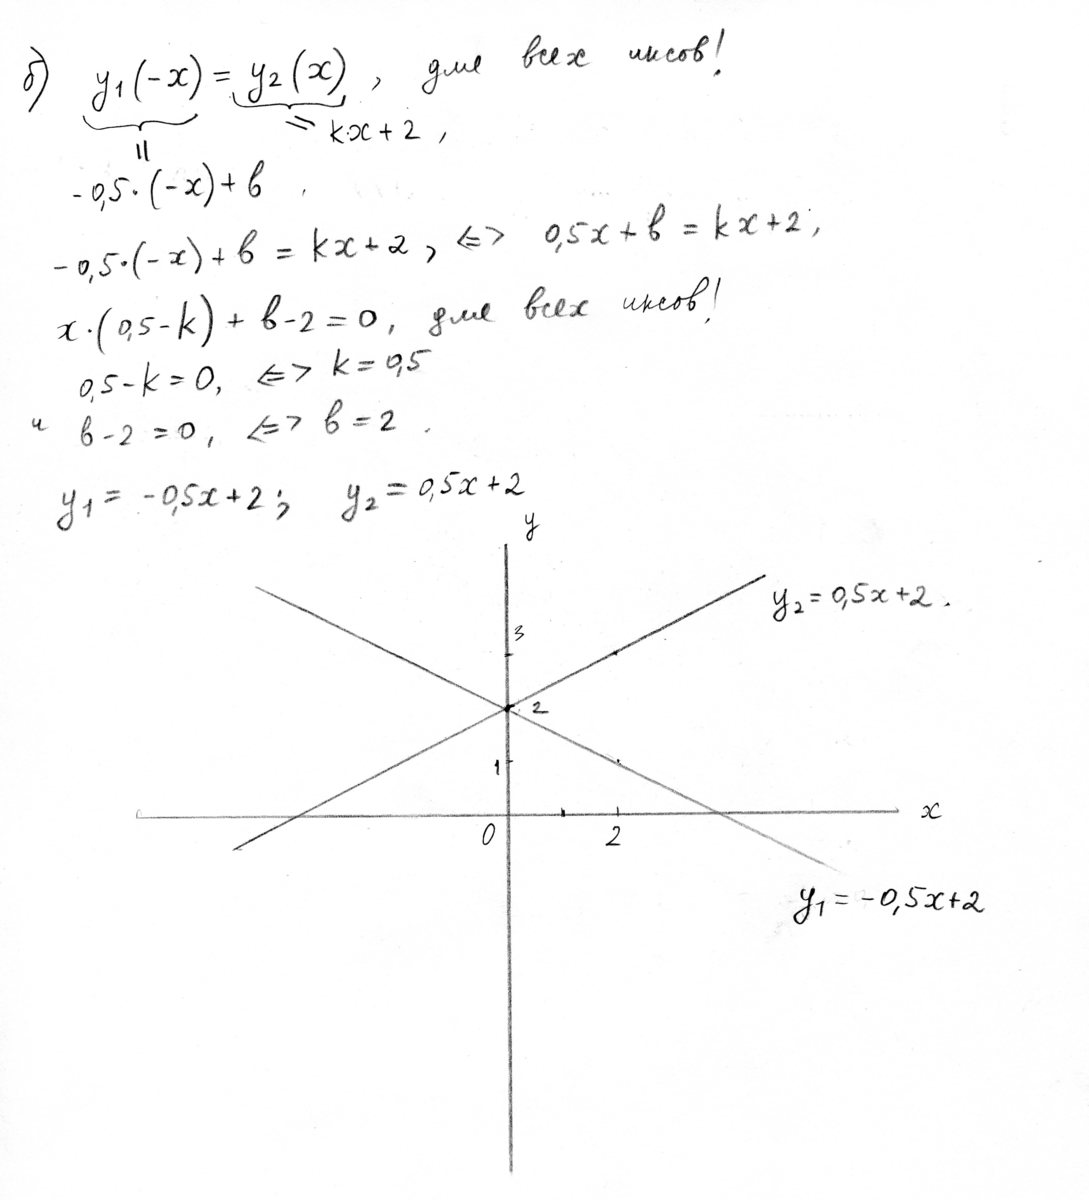 б) y₁(-x) = y₂(x), для всех иксов!
= k·x + 2,
||
-0,5·(-x) + b .
-0,5·(-x) + b = kx + 2, <=> 0,5x + b = kx + 2,
x·(0,5 - k) + b - 2 = 0, для всех иксов!
0,5 - k = 0, <=> k = 0,5
и b - 2 = 0, <=> b = 2 .
y₁ = -0,5x + 2; y₂ = 0,5x + 2
y
y₂ = 0,5x + 2 .
3
2
1
x
0 2
y₁ = -0,5x + 2